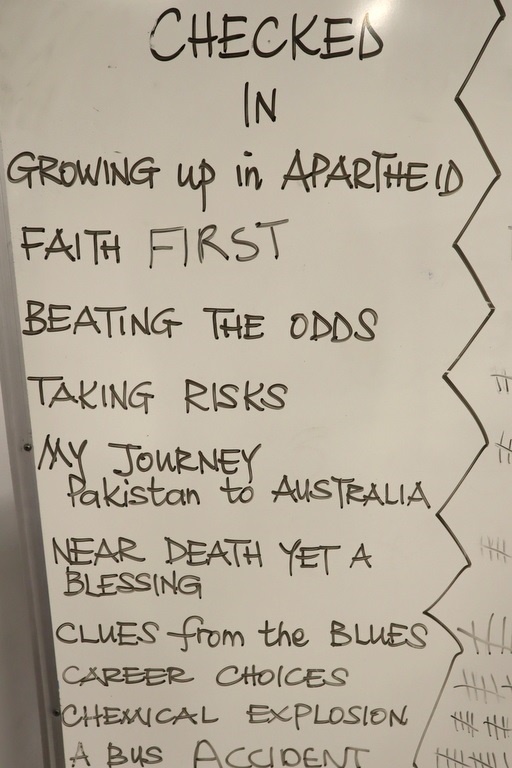 CHECKED
IN
GROWING up in APARTHEID
FAITH FIRST
BEATING THE ODDS
TAKING RISKS
MY JOURNEY
Pakistan to AUSTRALIA
NEAR DEATH YET A
BLESSING
CLUES from the BLUES
CAREER CHOICES
CHEMICAL EXPLOSION
A BUS ACCIDENT